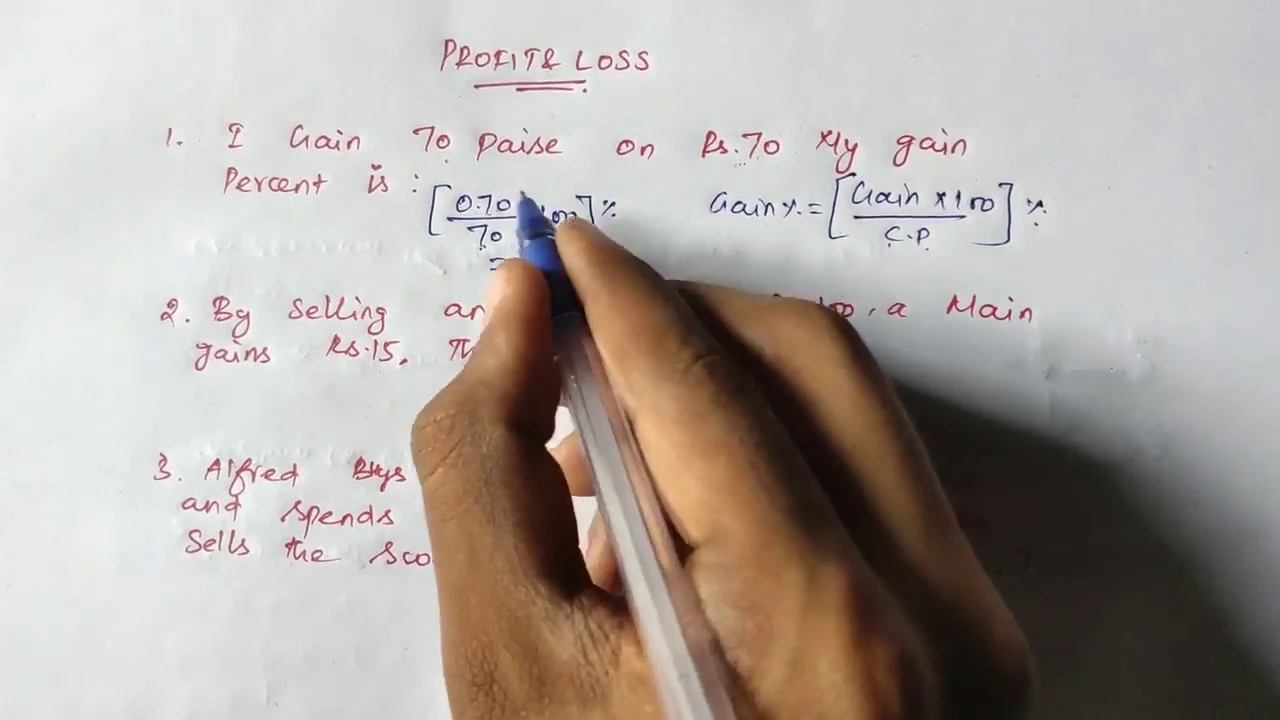 PROFIT & LOSS
1. I Gain 70 paise on Rs.70 My gain
Percent is :
[0.70/70 ×100]% Gain% = [Gain × 100 / C.P] %
=
2. By Selling , a Main
gains Rs.15,
3. Alfred Buys
and spends
Sells the